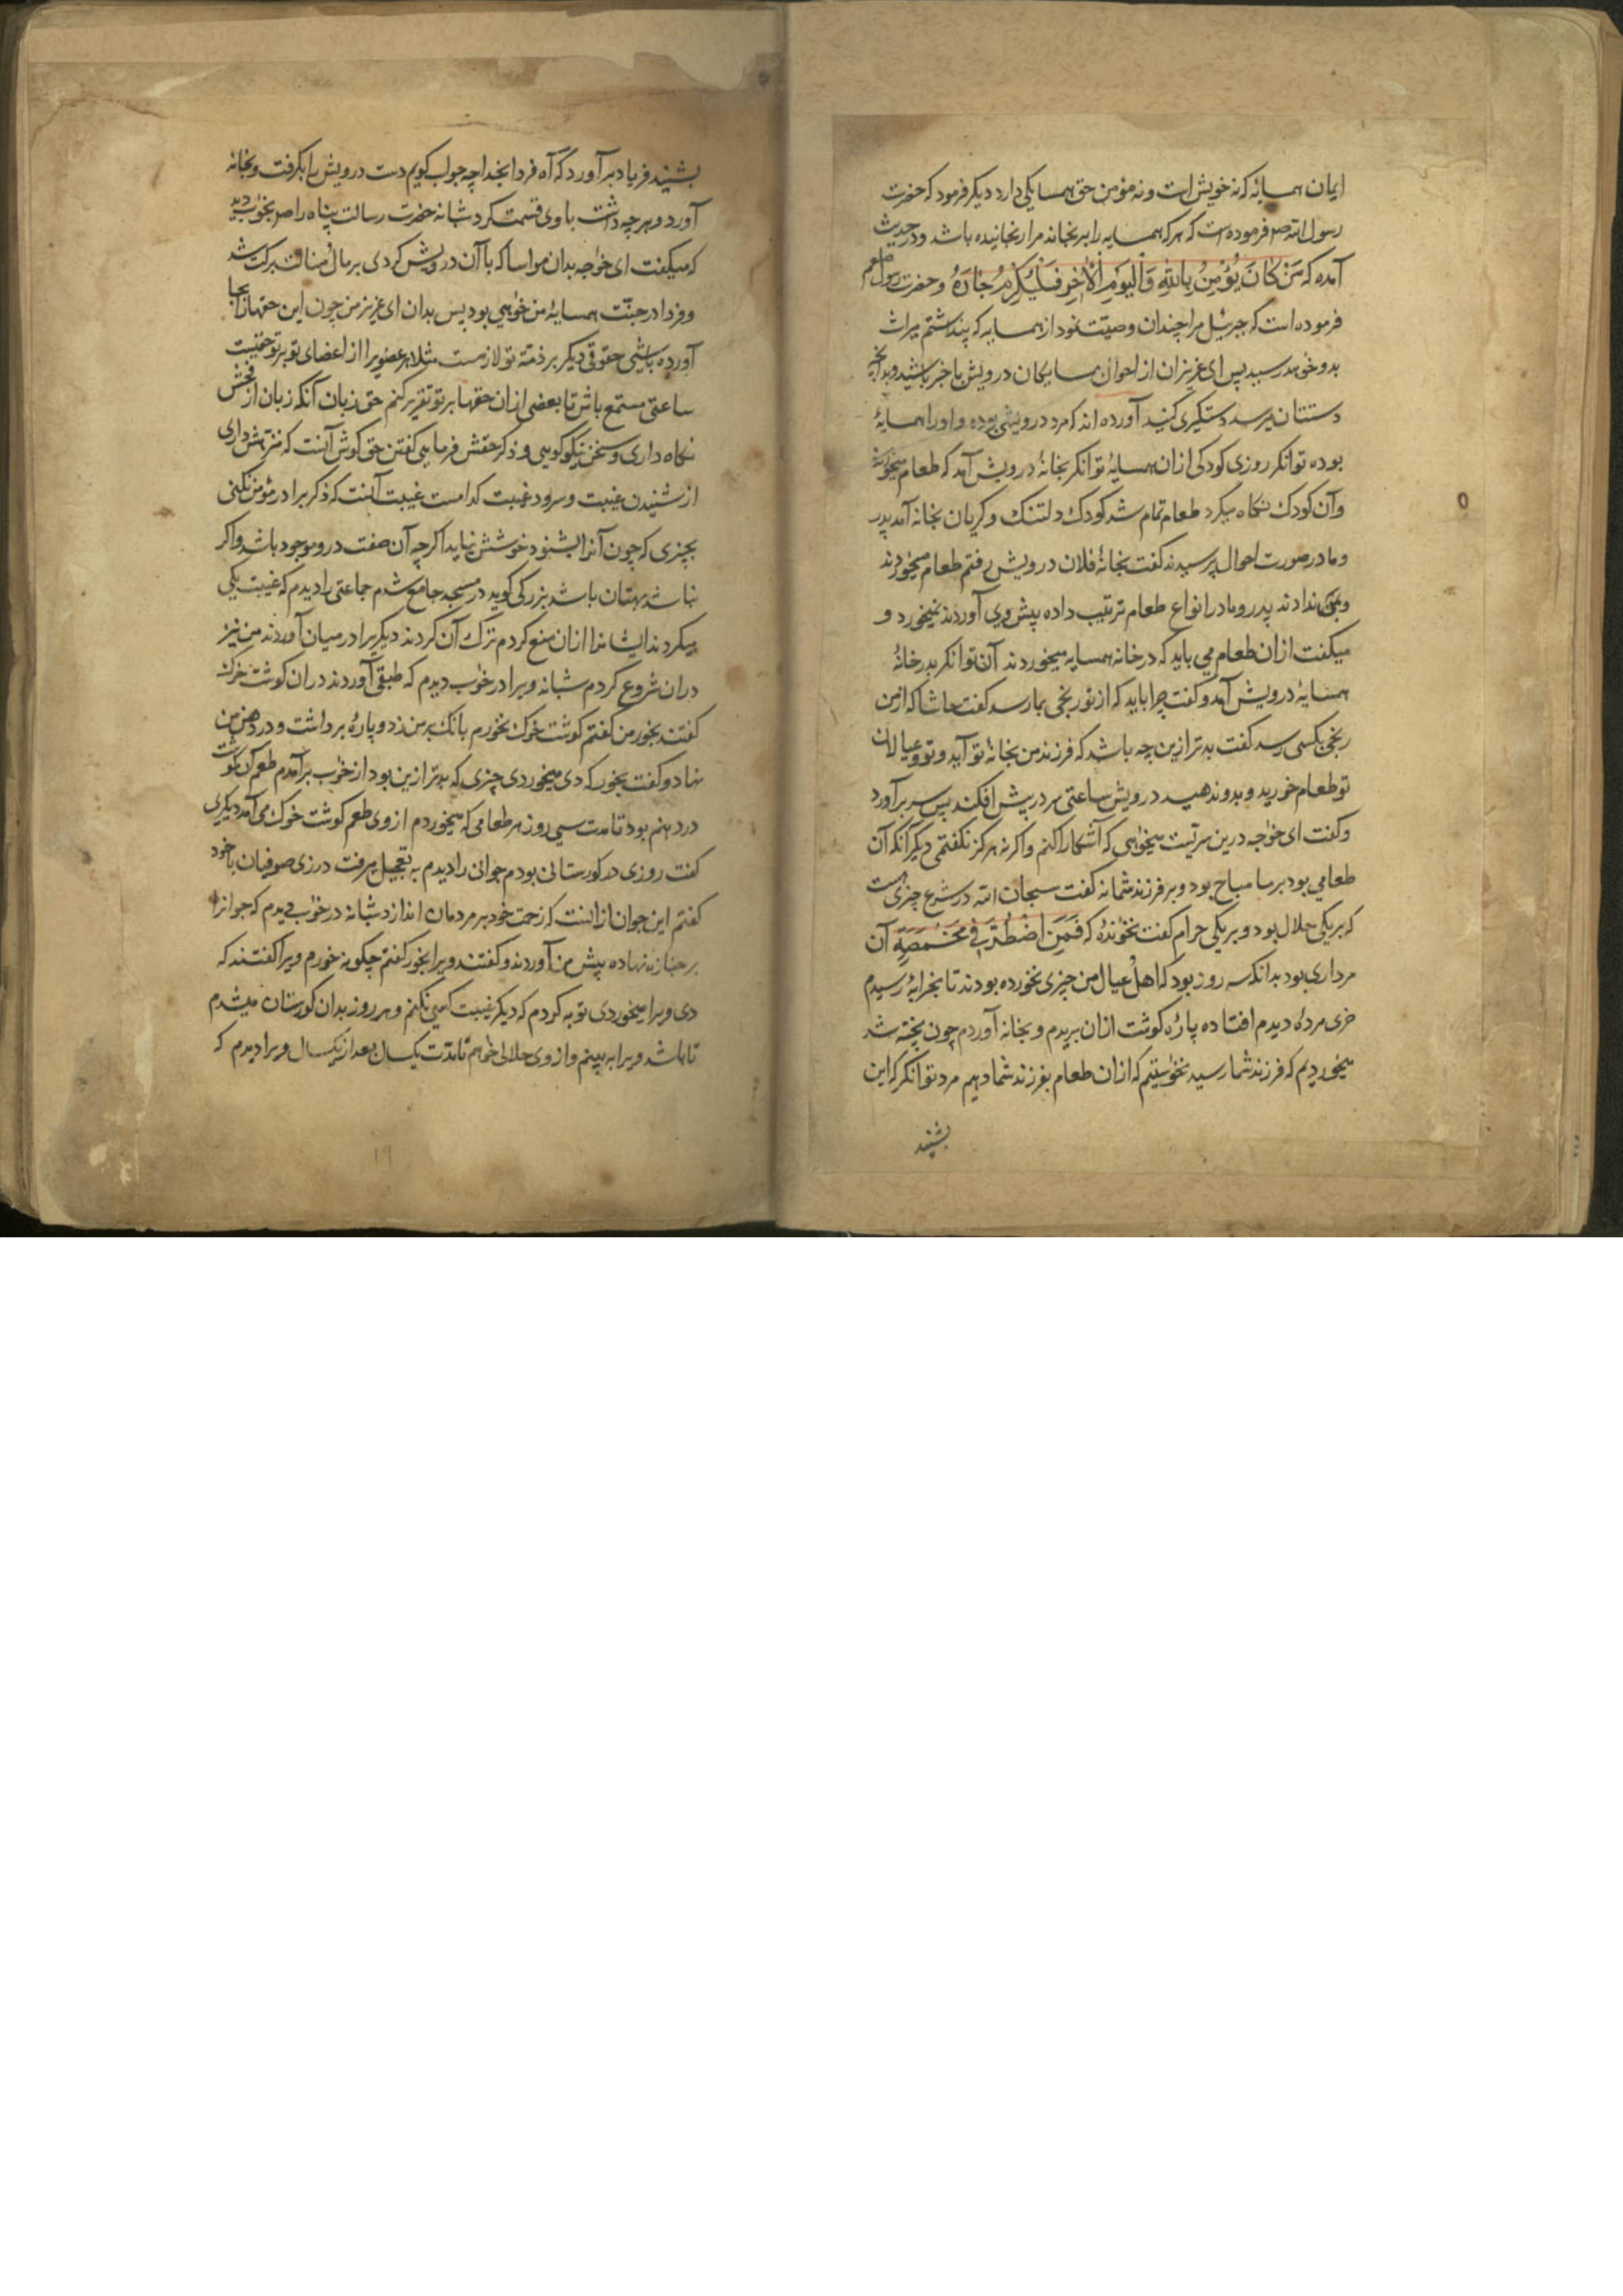 ایمان همسایه که نه خویش است و نه مؤمن حق همسایکی دارد دیکر فرمود که حضرت
رسول الله صم فرموده است که هر که همسایه را برنجاند مرا رنجانیده باشد و در حدیث
آمده که مَنْ كَانَ يُؤْمِنُ بِاللّٰهِ وَالْيَوْمِ الْآخِرِ فَلْيُكْرِمْ جَارَهُ و حضرت رسول صلعم
فرموده است که جبرئیل مرا چندان وصیّت نمود از همسایه که پنداشتم میراث
بدو خواهد رسید پس ای عزیزان از احوال همسایکان درویش با خبر باشید و بدانچه
دستتان میرسد دستکیری کنید آورده اند که مرد درویشی بوده و او را همسایهٔ
بوده توانکر روزی کودکی از ان همسایهٔ توانکر بخانهٔ درویش آمد که طعام میخوردند
و آن کودک نکاه میکرد طعام تمام شد کودک دلتنک و کریان بخانه آمد پدر
و مادر صورت احوال پرسیدند کفت بخانهٔ فلان درویش رفتم طعام میخوردند
و بمن ندادند پدر و مادر انواع طعام ترتیب داده پیش وی آوردند نمیخورد و
میکفت از ان طعام می باید که در خانه همسایه میخوردند آن توانکر بدر خانهٔ
همسایهٔ درویش آمد و کفت چرا باید که از تو رنجی بما رسد کفت حاشا که از من
رنجی بکسی رسد کفت بدتر ازین چه باشد که فرزند من بخانهٔ تو آید و تو و عیالان
تو طعام خورید و بدو ندهید درویش ساعتی سر در پیش افکند پس سر برآورد
و کفت ای خواجه درین سریست میخواهی که آشکارا کنم و اکر نه هرکز نکفتمی دیکر آنکه آن
طعامی بود بر ما مباح بود و بر فرزند شما نه کفت سبحان الله در شرع چیزی هست
که بر یکی حلال بود و بر یکی حرام کفت نخوانده که فَمَنِ اضْطُرَّ فِي مَخْمَصَةٍ آن
مرداری بود بدانکه سه روز بود که اهل عیال من چیزی نخورده بودند تا بخرابهٔ رسیدم
خری مردهٔ دیدم افتاده پارهٔ کوشت از ان بریدم و بخانه آوردم چون پخته شد
میخوردیم که فرزند شما رسید نخواستیم که از ان طعام بفرزند شما دهیم مرد توانکر که این
بشنید
بشنید فریاد برآورد که آه فردا بخدا چه جواب کویم دست درویش را بکرفت و بخانه
آورد و هر چه داشت با وی قسمت کرد شبانه حضرت رسالت پناه را صم بخواب دید
که میکفت ای خواجه بدان مواسا که با آن درویش کردی بر مال و منالت برکت شد
و فردا در جنّت همسایهٔ من خواهی بود پس بدان ای عزیز من چون این حقها را بجا
آورده باشی حقوقی دیکر بر ذمّهٔ تو لازمست مثلا هر عضوی را از اعضای تو بر تو حقیست
ساعتی مستمع باش تا بعضی از ان حقها بر تو تقریر کنم حق زبان آنکه زبان از فحش
نکاه داری و سخن نیکو کویی و ذکر حقش فرمایی کفتن حق کوش آنست که منزّهش داری
از شنیدن غیبت و سرود غیبت کدامست غیبت آنست که ذکر برادر مؤمن نکنی
بچیزی که چون آنرا بشنود خوشش نیاید اکرچه آن صفت درو موجود باشد و اکر
نباشد بهتان باشد بزرکی کوید در مسجد جامع شدم جماعتی را دیدم که غیبت یکی
میکردند ایشانرا از ان منع کردم ترک آن کردند دیکریرا در میان آوردند من نیز
در ان شروع کردم شبانه ویرا در خواب دیدم که طبقی آوردند در ان کوشت خوک
کفتند بخور من کفتم کوشت خوک نخورم بانک بر من زد و پارهٔ برداشت و در دهن من
نهاد و کفت بخور که دی میخوردی چیزی که بدتر ازین بود از خواب برآمدم طعم آن کوشت
در دهنم بود تا مدت سی روز هر طعامی که میخوردم از وی طعم کوشت خوک می آمد دیکری
کفت روزی در کورستانی بودم جوانی را دیدم به تعجیل میرفت در زی صوفیان با خود
کفتم این جوان ازانست که زحمت خود بر مردمان اندازد شبانه در خواب دیدم که جوانرا
بر جنازه نهاده پیش من آوردند و کفتند ویرا بخور کفتم چکونه خورم ویرا کفتند که
دی ویرا میخوردی توبه کردم که دیکر غیبت کسی نکنم و هر روز بدان کورستان میشدم
تا باشد ویرا به بینم و از وی حلالی خواهم تا مدّت یکسال بعد از یکسال ویرا دیدم که
۱۹